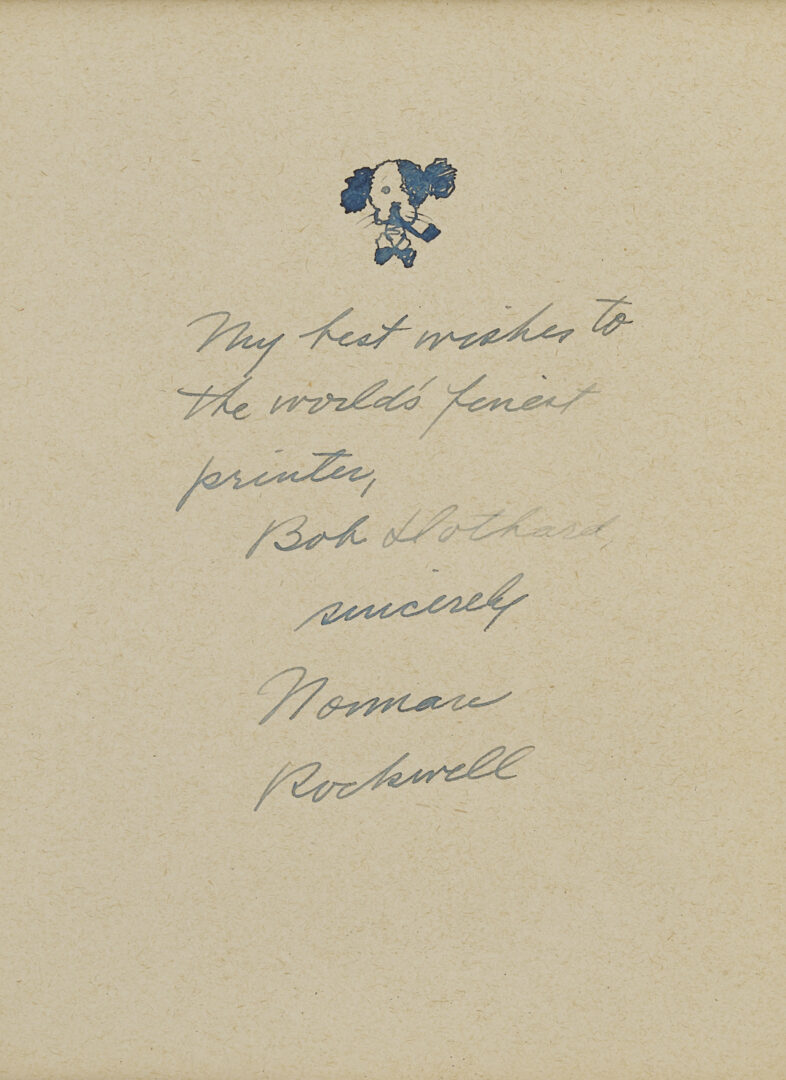 My best wishes to
the world's finest
printer,
Bob
sincerely
Norman
Rockwell